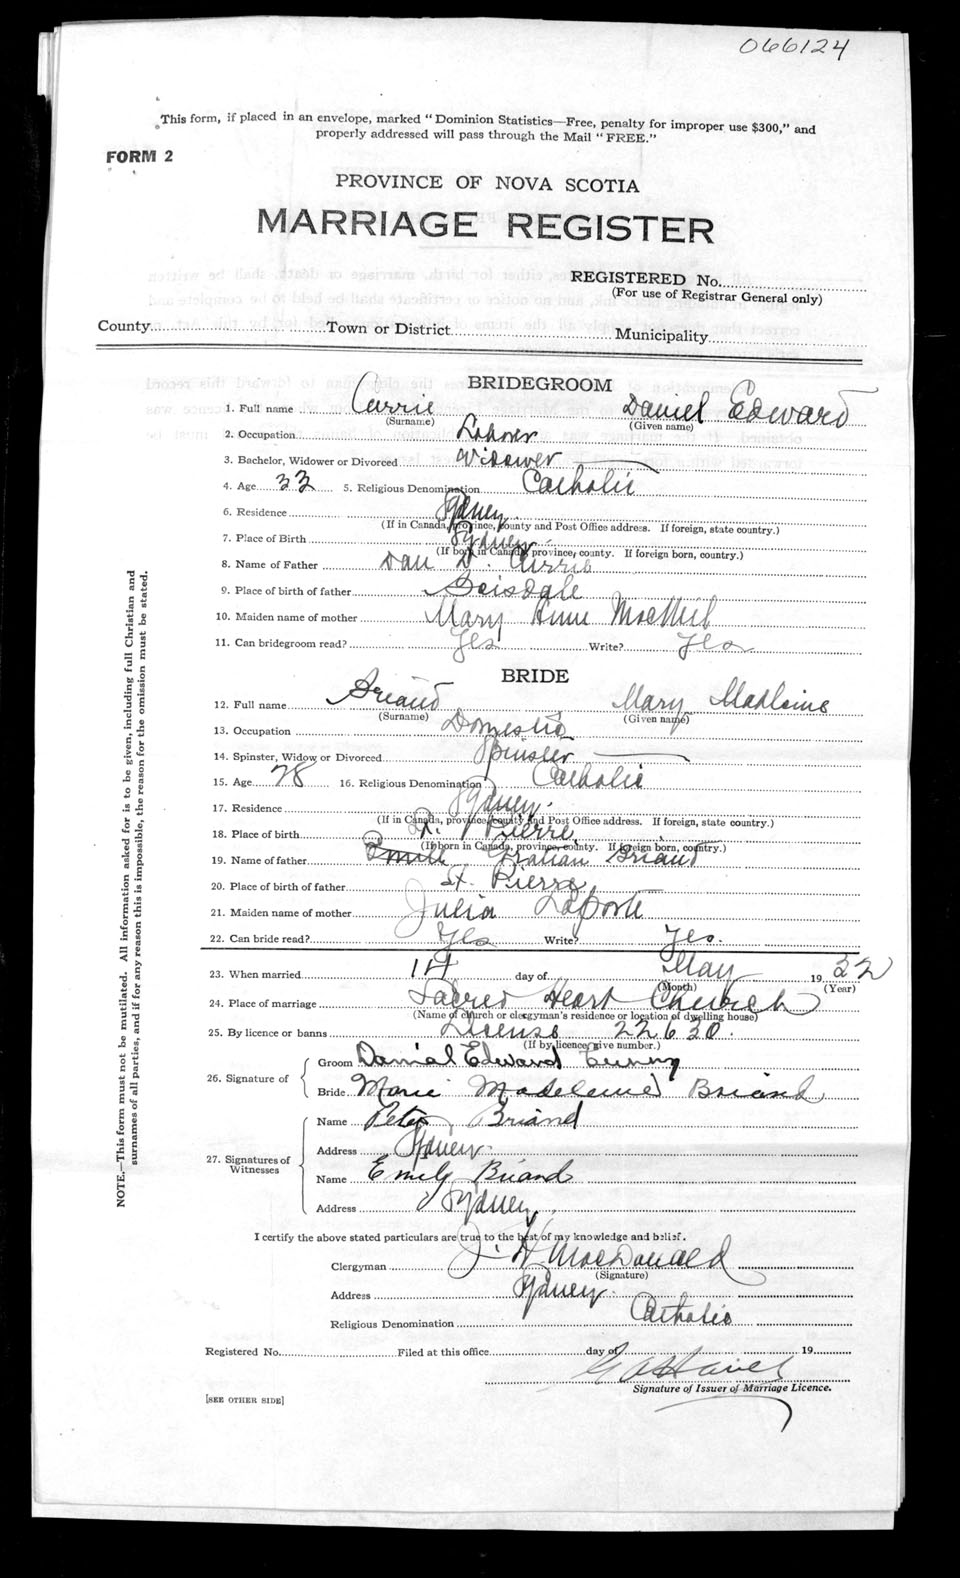 066124
This form, if placed in an envelope, marked "Dominion Statistics—Free, penalty for improper use $300," and
properly addressed will pass through the Mail "FREE."
FORM 2
PROVINCE OF NOVA SCOTIA
MARRIAGE REGISTER
REGISTERED No.
(For use of Registrar General only)
County Town or District Municipality
BRIDEGROOM
1. Full name Currie Daniel Edward
(Surname) (Given name)
2. Occupation Laborer
3. Bachelor, Widower or Divorced Widower
4. Age 33 5. Religious Denomination Catholic
6. Residence Sydney
(If in Canada, province, county and Post Office address. If foreign, state country.)
7. Place of Birth Sydney
(If born in Canada, province, county. If foreign born, country.)
8. Name of Father Dan D. Currie
9. Place of birth of father Boisdale
10. Maiden name of mother Mary Anne MacNeil
11. Can bridegroom read? Yes Write? Yes
BRIDE
12. Full name Briand Mary Madleine
(Surname) (Given name)
13. Occupation Domestic
14. Spinster, Widow or Divorced Spinster
15. Age 28 16. Religious Denomination Catholic
17. Residence Sydney
(If in Canada, province, county and Post Office address. If foreign, state country.)
18. Place of birth St. Pierre
(If born in Canada, province, county. If foreign born, country.)
19. Name of father Briand
20. Place of birth of father St. Pierre
21. Maiden name of mother Julia Laporte
22. Can bride read? Yes Write? Yes.
23. When married 14 day of May 19 32
(Month) (Year)
24. Place of marriage Sacred Heart Church
(Name of church or clergyman's residence or location of dwelling house)
25. By licence or banns License 22630.
(If by licence, give number.)
26. Signature of
Groom Daniel Edward
Bride Marie Madeleine Briand
27. Signatures of Witnesses
Name Peter Briand
Address Sydney
Name Emily Briand
Address Sydney
I certify the above stated particulars are true to the best of my knowledge and belief.
Clergyman J. H. MacDonald
(Signature)
Address Sydney
Religious Denomination Catholic
Registered No. Filed at this office day of 19
Signature of Issuer of Marriage Licence.
[SEE OTHER SIDE]
NOTE.—This form must not be mutilated. All information asked for is to be given, including full Christian and
surnames of all parties, and if for any reason this is impossible, the reason for the omission must be stated.